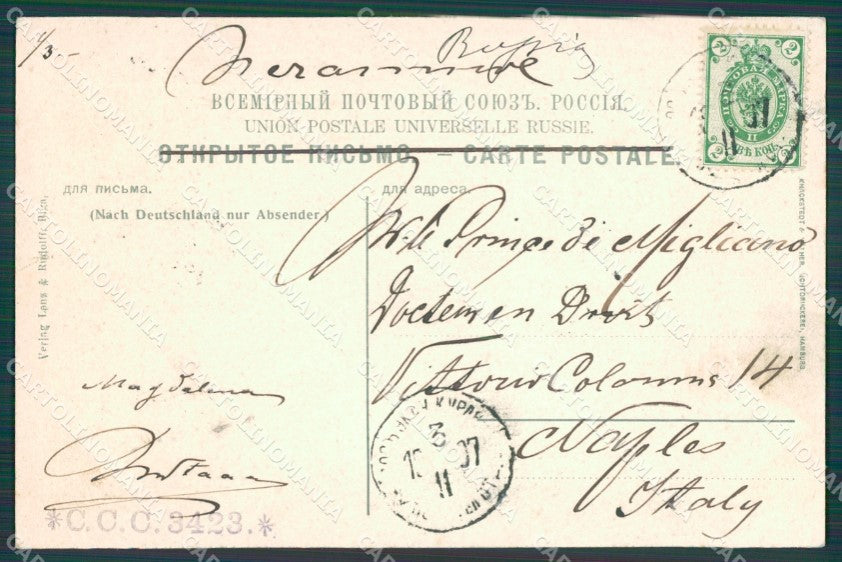 1/3.-
Russia
ВСЕМІРНЫЙ ПОЧТОВЫЙ СОЮЗЪ. РОССІЯ.
UNION POSTALE UNIVERSELLE RUSSIE.
ОТКРЫТОЕ ПИСЬМО. — CARTE POSTALE.
2 2
II
ДВѢ КОП.
2 2
07
11
для письма.
(Nach Deutschland nur Absender.)
для адреса.
Verlag Lenz & Rudolff, Riga.
KNACKSTEDT & NÄTHER, LICHTDRUCKEREI, HAMBURG
Mr le Prince di Migliano
Docteur en Droit
Vittorio Colonna 14
Naples
Italy
Magdalena
3
07
11
*C.C.C. 3423.*
CARTOLINOMANIA